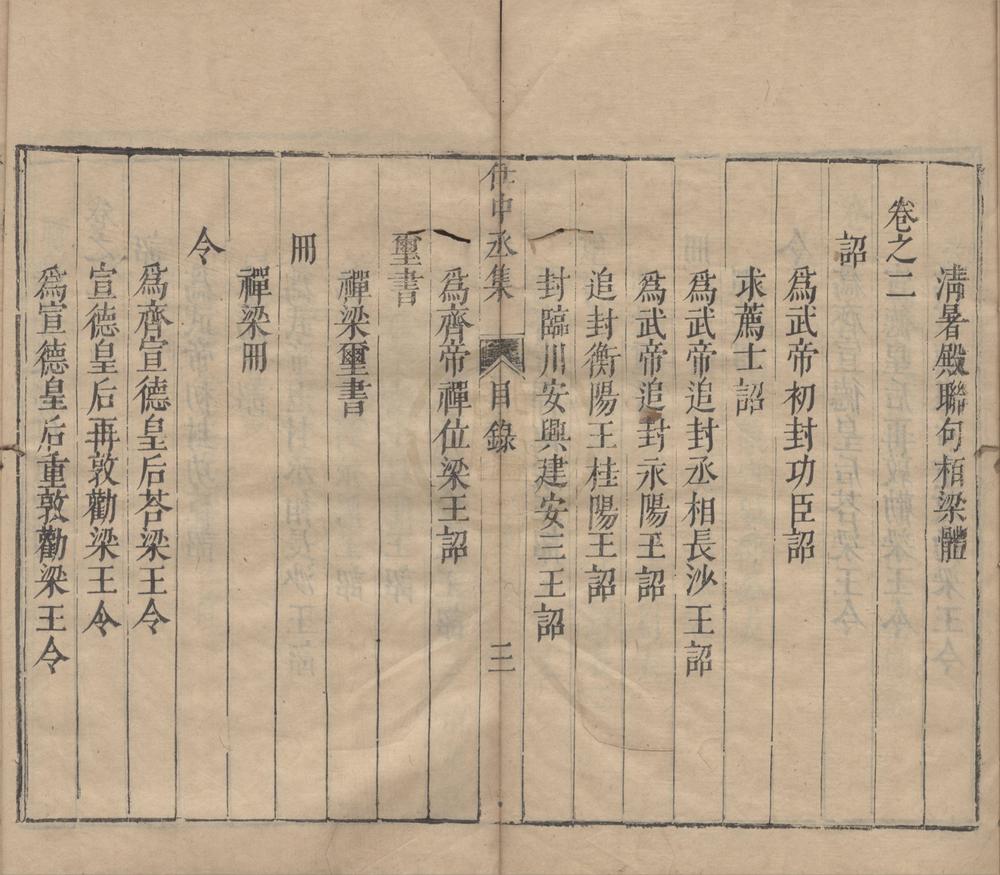 清暑殿聯句栢梁體
卷之二
詔
爲武帝初封功臣詔
求薦士詔
爲武帝追封丞相長沙王詔
爲武帝追封永陽王詔
追封衡陽王桂陽王詔
封臨川安興建安三王詔
任中丞集
目錄
三
爲齊帝禪位梁王詔
璽書
禪梁璽書
冊
禪梁冊
令
爲齊宣德皇后荅梁王令
宣德皇后再敦勸梁王令
爲宣德皇后重敦勸梁王令